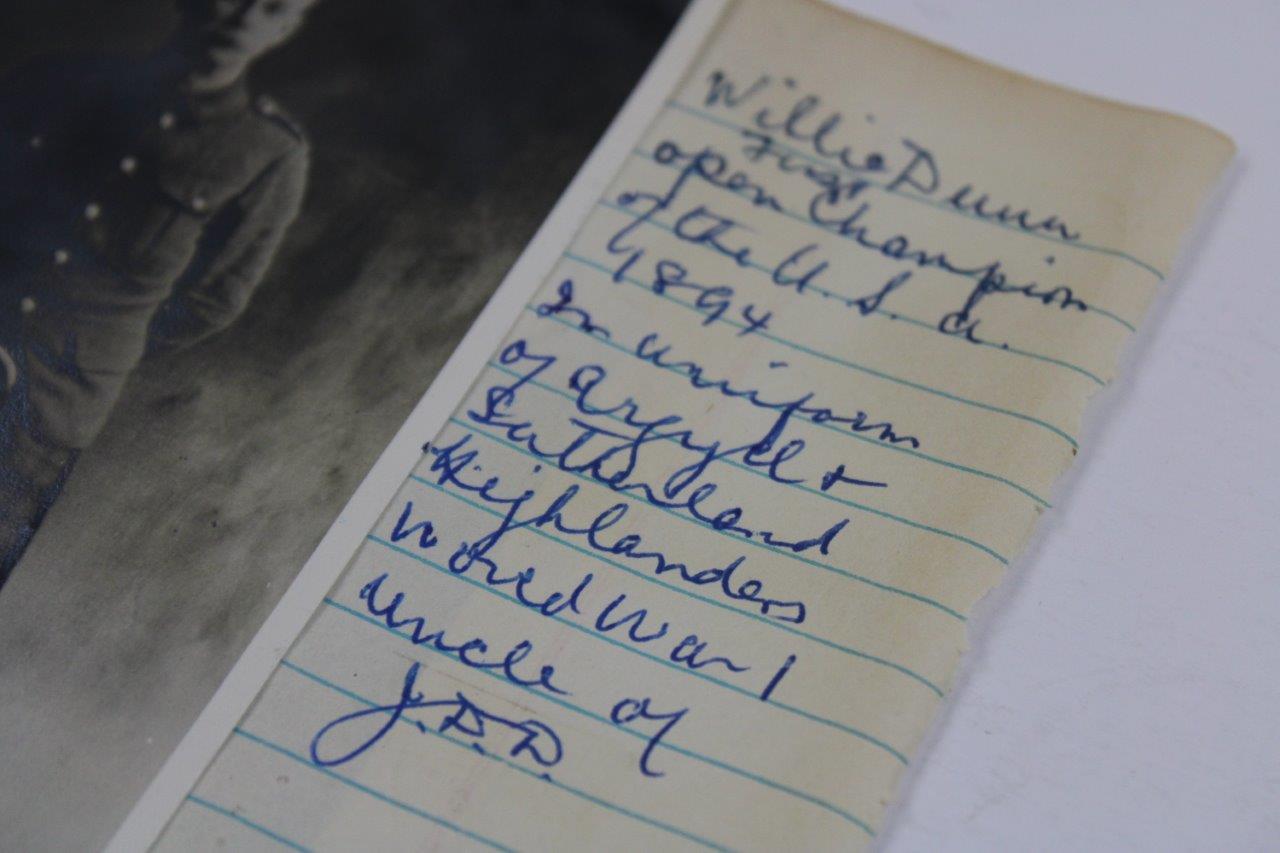 Willie Dunn
First
open Champion
of the U.S.A.
1894
In uniform
of Argyll +
Sutherland
Highlanders
World War 1
uncle of
J.D.D.